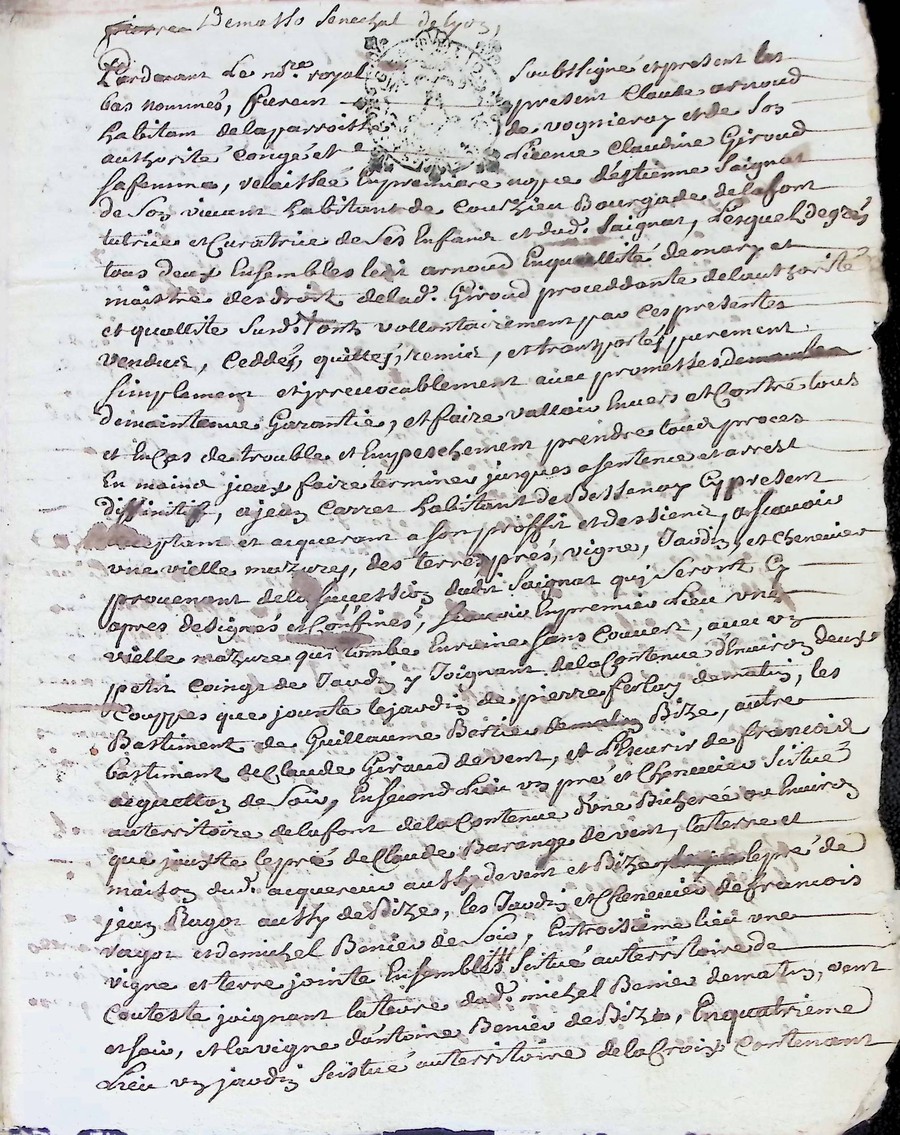 Demasso Senechal de Lyon,
Pardevant Le nore. royal soubssigné et present les
bas nommés, furent present Claude arnoud
habitant de la parroisse de vognieray et de son
authorité congé et Licence Claudine Giroud
sa femme, relaissée En premiere nopce d'Estienne Saignat
de Son vivant habitant de Courzieu Bourgade de la font
tutrice et Curatrice de Ses Enfant et dud. Saignat, Lesquel de grés
tous deux Ensembles led. arnoud En quallité de mary et
maistre des droit de lad. Giroud proceddante de l'authorité
et quallité susd. ont vollontairement par ces presentes
vendus, ceddés, quittés, remis, et transportés purement
simplement et irrevocablement avec promesses
de maintenue Garantie, et faire valloir Envers et Contre tous
et En Cas de trouble et Empeschement prendre tous proces
En mains jceux faire terminer jusques a sentence et arrest
diffinitif, a jean Carret habitant de Bessenay Cy present
acceptant et acquerant a son proffit et des siens, a scavoir
une vielle mazures, des terres, prés, vigne, Jardin, et chenevier
provenant de la succession dudit Saignat qui Seront Cy
apres designés et Confinés, scavoir En premier Lieu une
vielle mazure qui tombe En ruine sans Couvert, avec un
petit coings de Jardin y Joignant de la Contenue d'Environ deux
Couppes que jouxte le jardin de pierre ferloy de matin, les
Bastiment de Guillaume Bertier Bize, autre
bastiment de Claude Giraud de vent, et de francois
acquetton de Soir, En second Lieu un pré et Chenevier scistué
au territoire de la font de la Contenue d'une Bicherée ou Environ
que jouxte le pré de Claude Barange de vent, la terre et
maison dud. acquereur aussy de vent et Bize, le pré de
jean Ragot aussy de Bize, les Jardin et Chenevier de francois
ragot et de michel Benier de Soir, En troisième lieu une
vigne et terre jointe Ensembles scistué au territoire de
Couteste joignant la terre dud. michel Benier de matin, vent
et soir, et la vigne d'antoine Benier de Bize, En quatrieme
Lieu un jardin scistué au territoire de la Croix Contenant